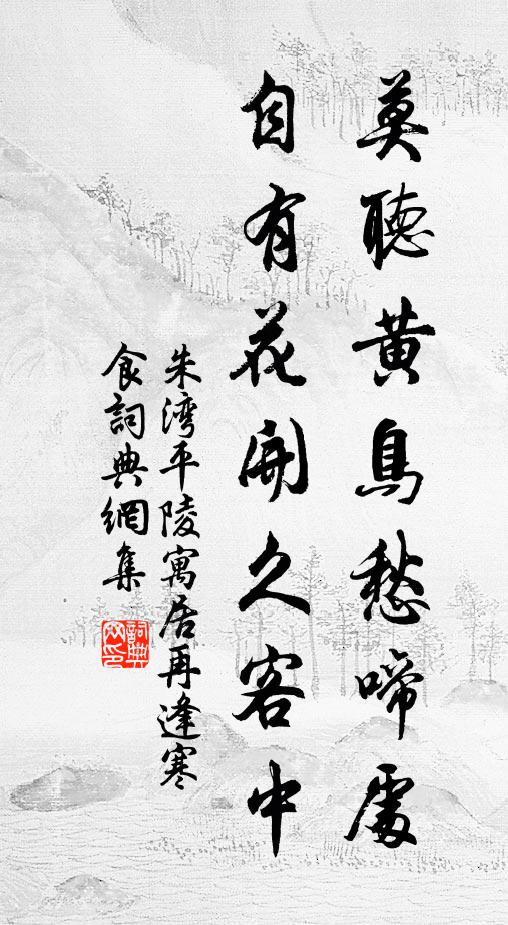 莫聽黃鳥愁啼處
自有花開久客中
朱灣平陵寓居再逢寒
食詞典網集
詞典網印